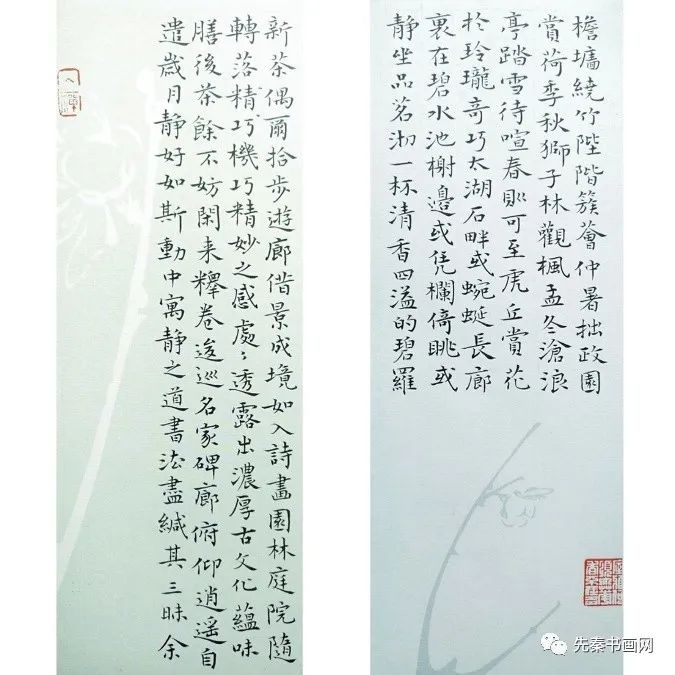 檐墻繞竹陛階簇薈仲暑拙政園
賞荷季秋獅子林觀楓孟冬滄浪
亭踏雪待喧春則可至虎丘賞花
於玲瓏奇巧太湖石畔或蜿蜒長廊
裏在碧水池榭邊或凭欄倚眺或
静坐品茗沏一杯清香四溢的碧羅
新茶偶爾拾步遊廊借景成境如入詩畫園林庭院隨
轉落精巧機巧精妙之感處々透露出濃厚古文化蘊味
膳後茶餘不妨閑来釋卷逡巡名家碑廊俯仰逍遥自
遣歲月静好如斯動中寓静之道書法盡緘其三昧余
先秦书画网